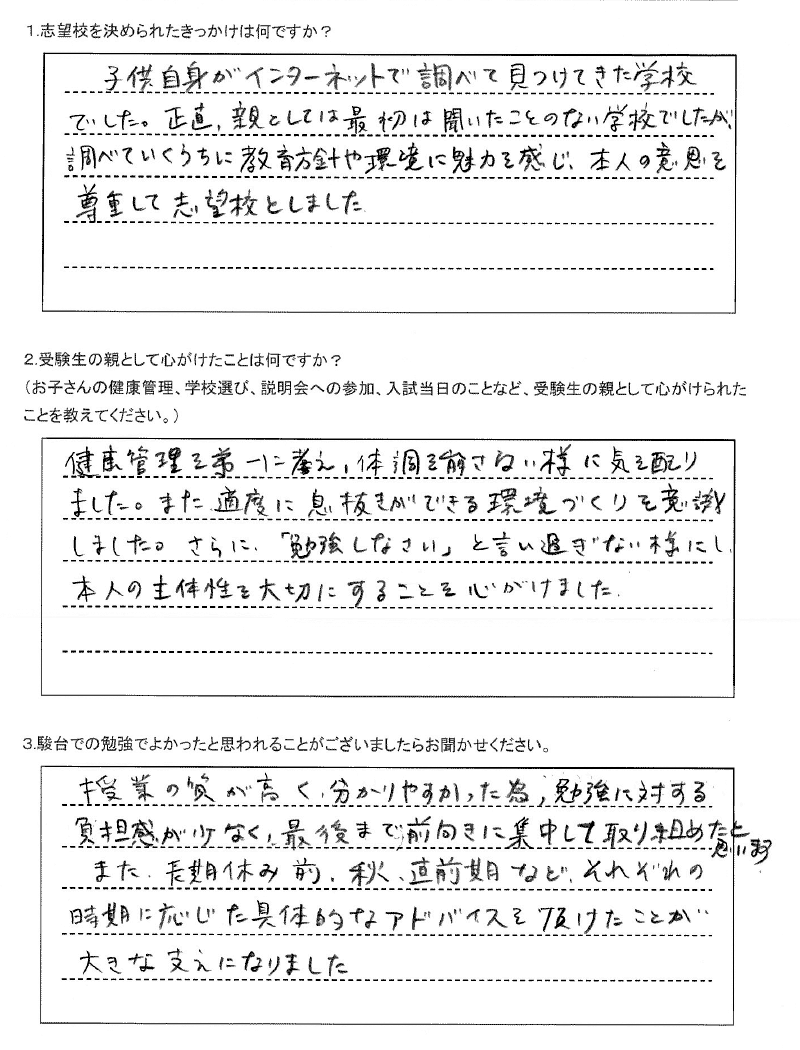 1.志望校を決められたきっかけは何ですか？
子供自身がインターネットで調べて見つけてきた学校
でした。正直、親としては最初は聞いたことのない学校でしたが、
調べていくうちに教育方針や環境に魅力を感じ、本人の意思を
尊重して志望校としました
2.受験生の親として心がけたことは何ですか？
（お子さんの健康管理、学校選び、説明会への参加、入試当日のことなど、受験生の親として心がけられた
ことを教えてください。）
健康管理を第一に考え、体調を崩さない様に気を配り
ました。また適度に息抜きができる環境づくりを意識
しました。さらに、「勉強しなさい」と言い過ぎない様にし、
本人の主体性を大切にすることを心がけました.
3.駿台での勉強でよかったと思われることがございましたらお聞かせください。
授業の質が高く、分かりやすかった為、勉強に対する
負担感が少なく、最後まで前向きに集中して取り組めたと
思います
また、長期休み前、秋、直前期など、それぞれの
時期に応じた具体的なアドバイスを頂けたことが
大きな支えになりました